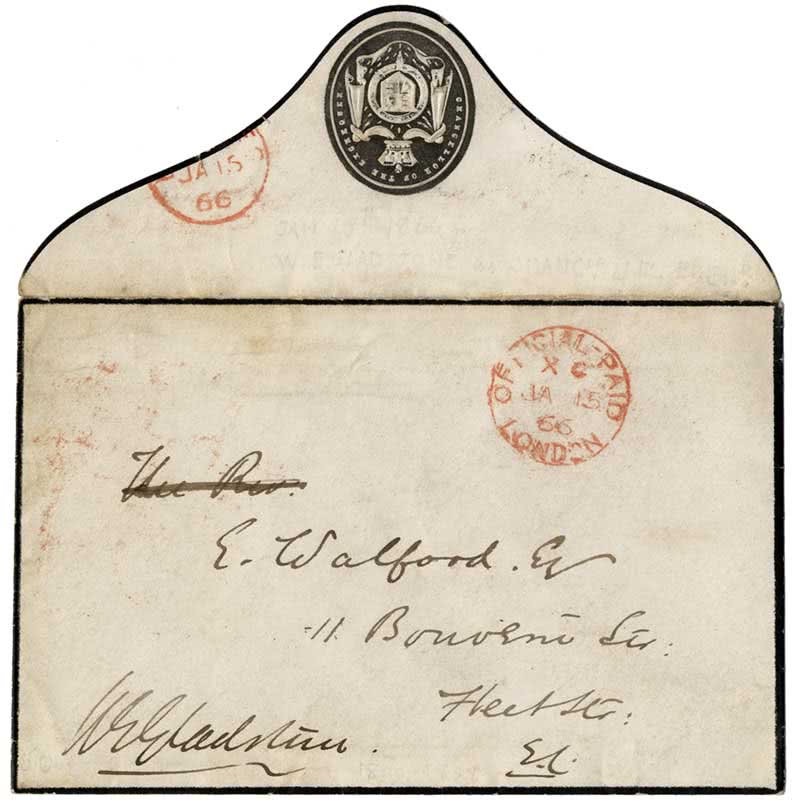 CHANCELLOR OF THE EXCHEQUER
JA 15
66
OFFICIAL-PAID
X C
JA 15
66
LONDON
The Rev.
E. Walford. Esq
11 Bouverie Str:
Fleet Str:
E.C.
WEGladstone.